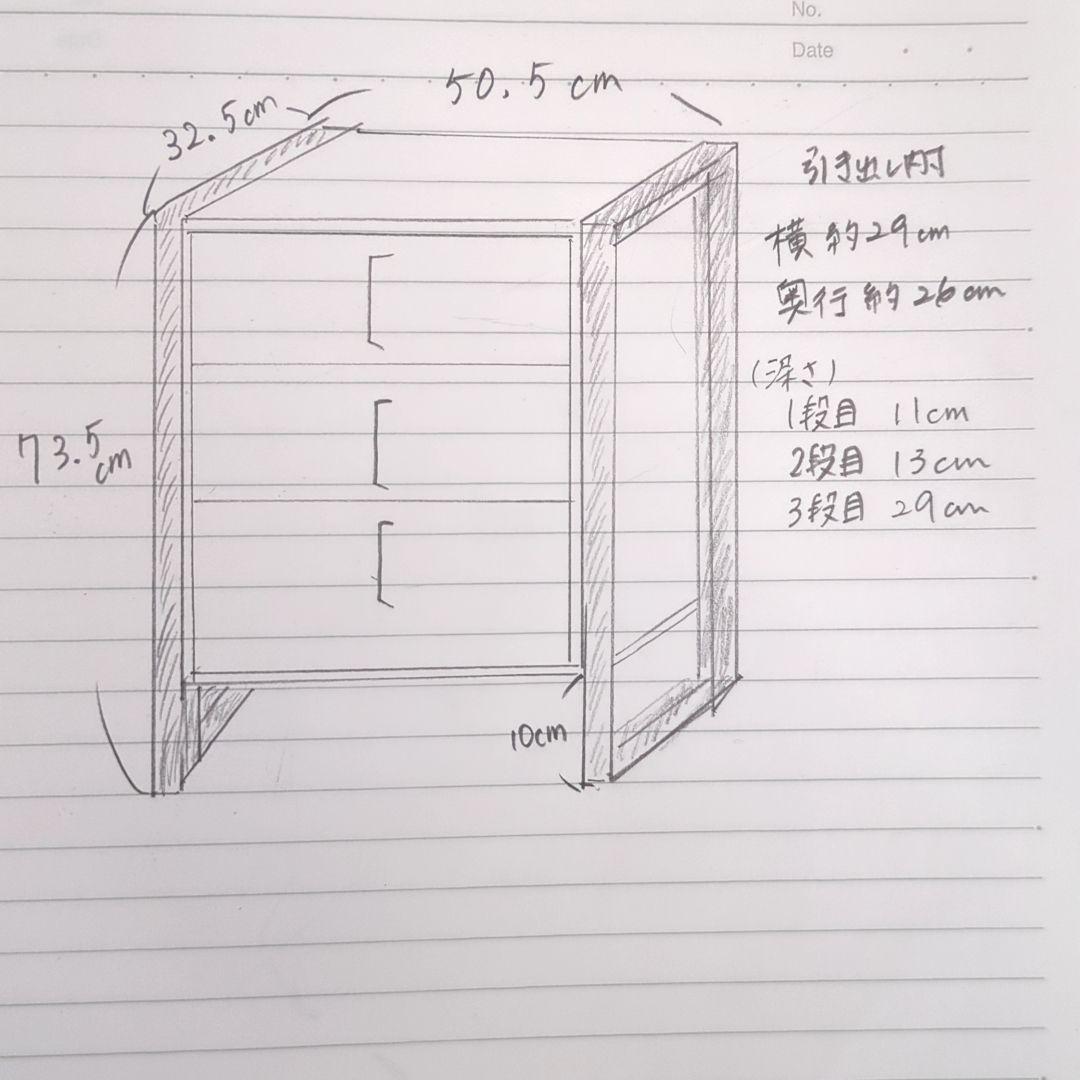 No.
Date
50.5cm
32.5cm
引き出し内寸
横 約29cm
奥行 約26cm
(深さ)
1段目 11cm
2段目 13cm
3段目 29cm
73.5cm
10cm